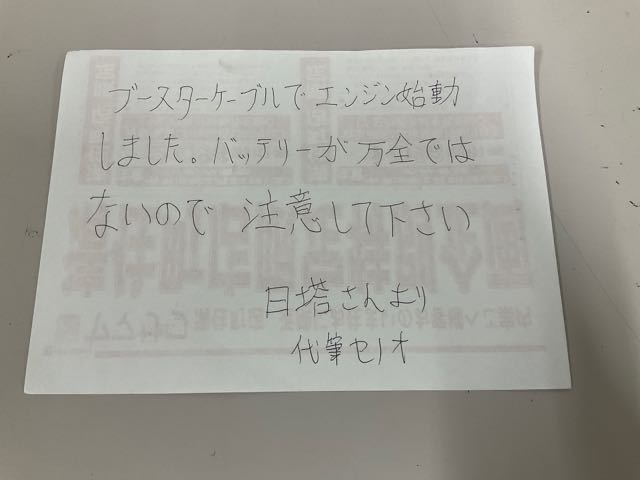 ブースターケーブルでエンジン始動
しました。バッテリーが万全では
ないので 注意して下さい
日塔さんより
代筆セノオ